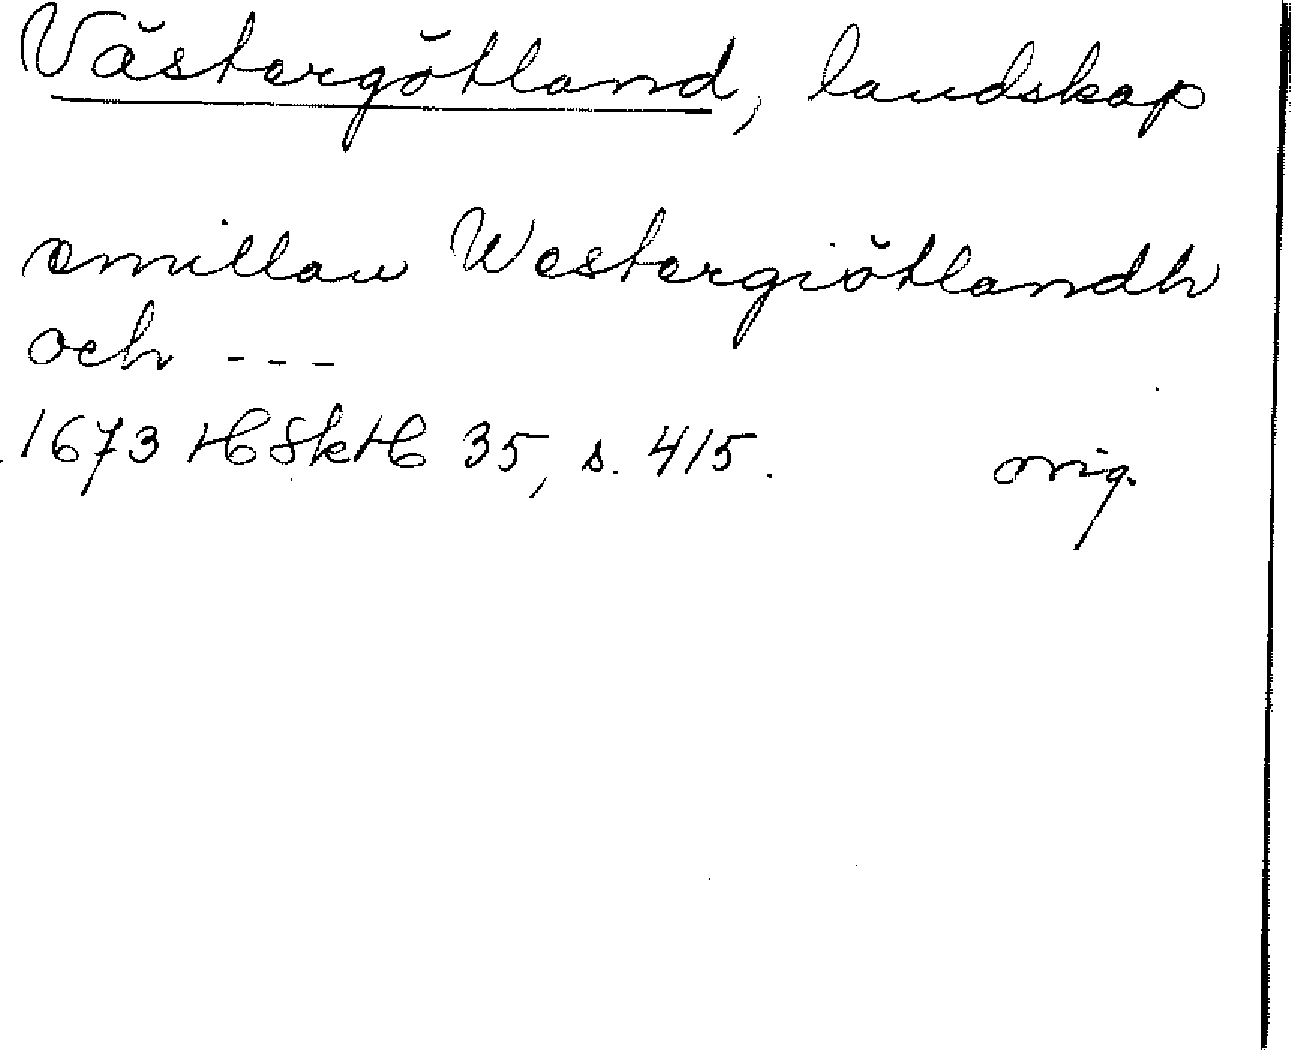 Västergötland, landskap
emillan Westergiötlandh
och ---
1673 HSkH 35, s. 415.
orig.